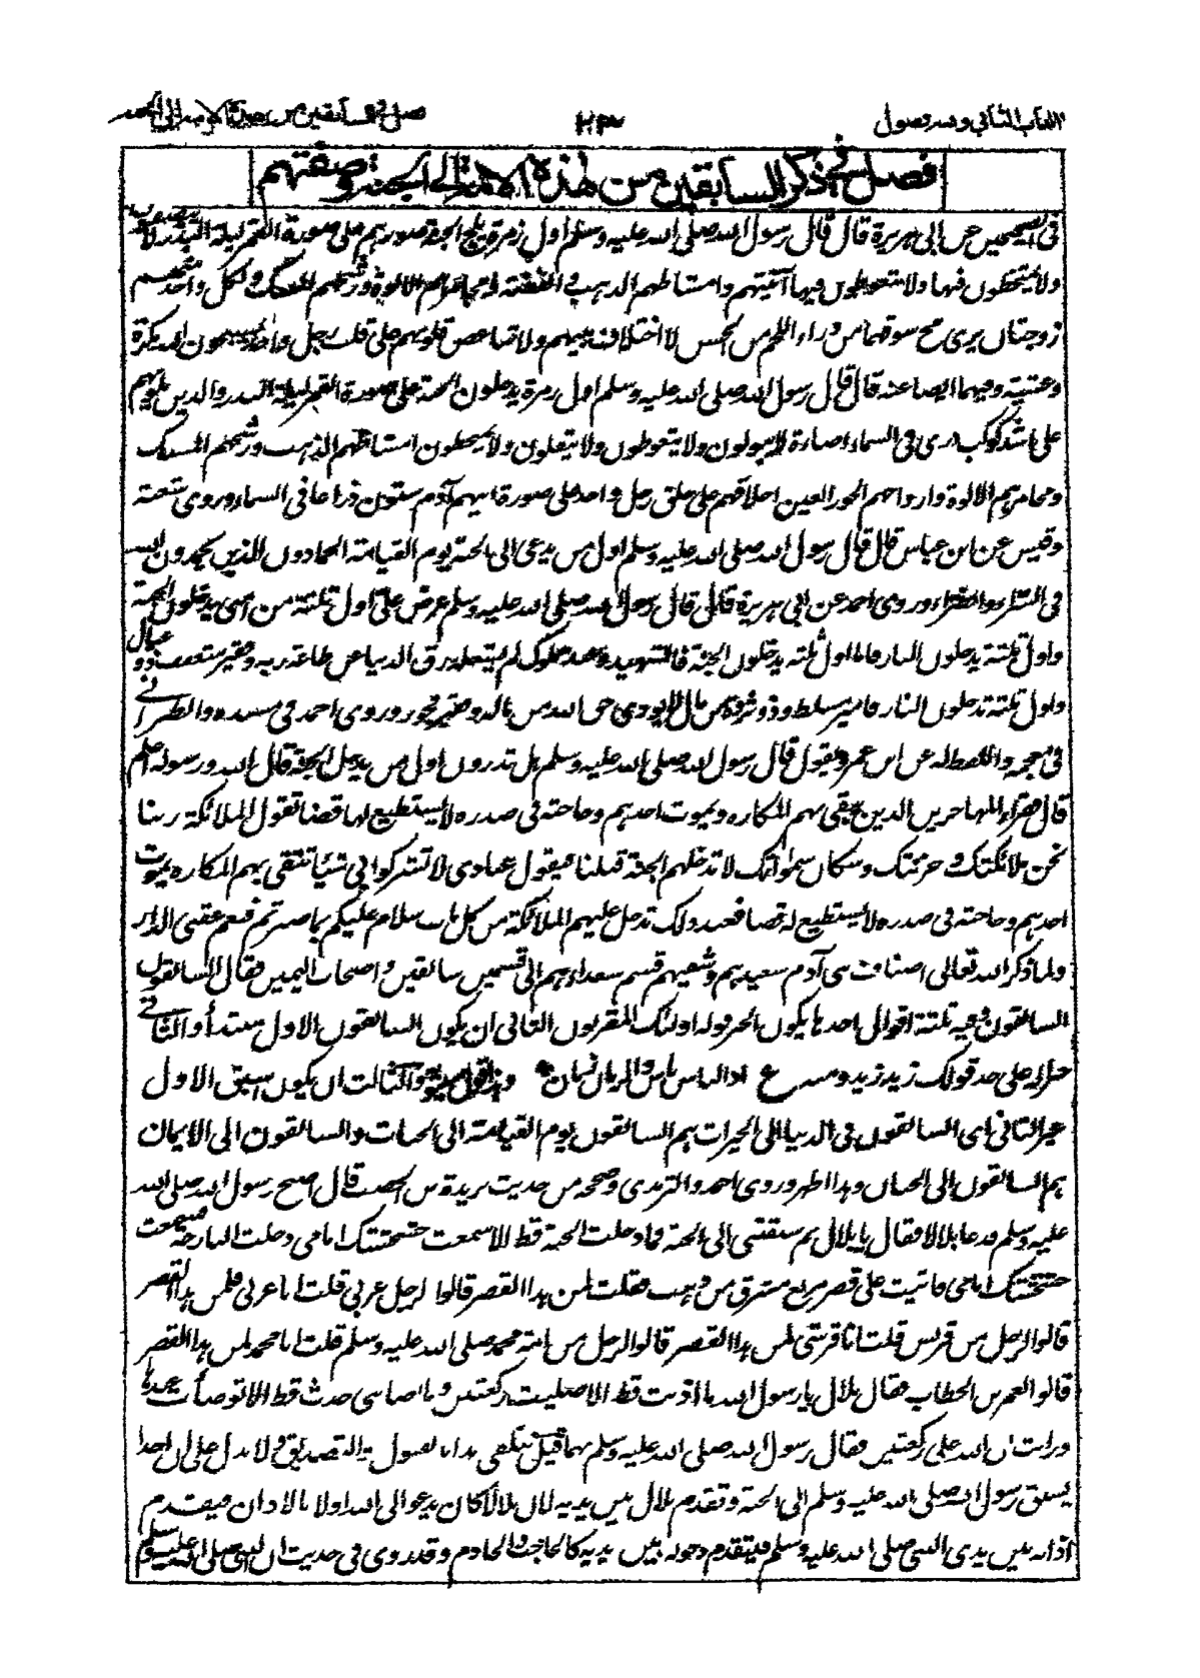 الكتاب الثانى وفيه فصول ٢٣٠ فصل فى السابقين من هذه الامة الى الجنة
فصل فى ذكر السابقين من هذه الامة الى الجنة وصفتهم
فى الصحيحين عن ابى هريرة قال قال رسول الله صلى الله عليه وسلم اول زمرة تلج الجنة صورهم على صورة القمر ليلة البدر لا يبصقون
ولا يمتخطون فيها ولا يتغوطون فيها آنيتهم وامشاطهم الذهب والفضة ومجامرهم الالوة ورشحهم المسك ولكل واحد منهم
زوجتان يرى مخ سوقهما من وراء اللحم من الحسن لا اختلاف بينهم ولا تباغض قلوبهم على قلب رجل واحد يسبحون الله بكرة
وعشية وفيهما ايضا عنه قال قال رسول الله صلى الله عليه وسلم اول زمرة يدخلون الجنة على صورة القمر ليلة البدر والذين يلونهم
على اشد كوكب درى فى السماء اضاءة لا يبولون ولا يتغوطون ولا يتفلون ولا يمتخطون امشاطهم الذهب ورشحهم المسك
ومجامرهم الالوة وازواجهم الحور العين اخلاقهم على خلق رجل واحد على صورة ابيهم آدم ستون ذراعا فى السماء وروى شعبة
وقيس عن ابن عباس قال قال رسول الله صلى الله عليه وسلم اول من يدعى الى الجنة يوم القيامة الحمادون الذين يحمدون الله
فى السراء والضراء وروى احمد عن ابى هريرة قال قال رسول الله صلى الله عليه وسلم عرض على اول ثلثة من امتى يدخلون الجنة
واول ثلثة يدخلون النار فاما اول ثلثة يدخلون الجنة فالشهيد وعبد مملوك لم يشغله رق الدنيا عن طاعة ربه وفقير متعفف ذو عيال
واول ثلثة يدخلون النار فامير مسلط وذو ثروة من مال لا يودى حق الله من ماله وفقير فخور وروى احمد فى مسنده والطبرانى
فى معجمه واللفظ له عن ابن عمر ويقول قال رسول الله صلى الله عليه وسلم هل تدرون اول من يدخل الجنة قال الله ورسوله اعلم
قال فقراء المهاجرين الذين يتقى بهم المكاره ويموت احدهم وحاجته فى صدره لا يستطيع لها قضا تقول الملائكة ربنا
نحن ملائكتك وخزنتك وسكان سمواتك لا تدخلهم الجنة قبلنا فيقول عبادى لا تشركوا بى شيئا تتقى بهم المكاره يموت
احدهم وحاجته فى صدره لا يستطيع له قضا فعند ذلك تدخل عليهم الملائكة من كل باب سلام عليكم بما صبرتم فنعم عقبى الدار
ولما ذكر الله تعالى اصناف بنى آدم سعيدهم وشقيهم قسم سعداءهم الى قسمين سابقين واصحاب اليمين فقال السابقون
السابقون وفيه ثلثة اقوال احدها يكون الخبر قوله اولئك المقربون الثانى ان يكون السابقون الاول مبتدأ والثانى
خبر له على حد قولك زيد زيد ومنه ع اذ الناس ناس والزمان زمان وهذا قول سيبويه والثالث ان يكون اسبق الاول
غير الثانى اى السابقون فى الدنيا الى الخيرات هم السابقون يوم القيامة الى الجنات والسابقون الى الايمان
هم السابقون الى الجنان وهذا اظهر وروى احمد والترمذى وصححه من حديث بريدة بن الحصيب قال اصبح رسول الله صلى الله
عليه وسلم فدعا بلالا فقال يا بلال بم سبقتنى الى الجنة فما دخلت الجنة قط الا سمعت خشخشتك امامى دخلت البارحة فسمعت
خشخشتك امامى فاتيت على قصر مربع مشرف من ذهب فقلت لمن هذا القصر قالوا لرجل عربى قلت انا عربى فلمن هذا القصر
قالوا لرجل من قريش قلت انا قرشى لمن هذا القصر قالوا لرجل من امة محمد صلى الله عليه وسلم قلت انا محمد لمن هذا القصر
قالوا لعمر بن الخطاب فقال بلال يا رسول الله ما اذنت قط الا صليت ركعتين وما اصابنى حدث قط الا توضأت عندها
ورايت ان لله على ركعتين فقال رسول الله صلى الله عليه وسلم بهما قيل نتلقى هذا بالقبول والتصديق ولا يدل على ان احدا
يسبق رسول الله صلى الله عليه وسلم الى الجنة وتقدم بلال بين يديه لان بلالا كان يدعو الى الله اولا بالاذان فيتقدم
اذانه بين يدى النبى صلى الله عليه وسلم فيتقدم دخوله بين يديه كالحاجب والخادم وقد روى فى حديث ان النبى صلى الله عليه وسلم